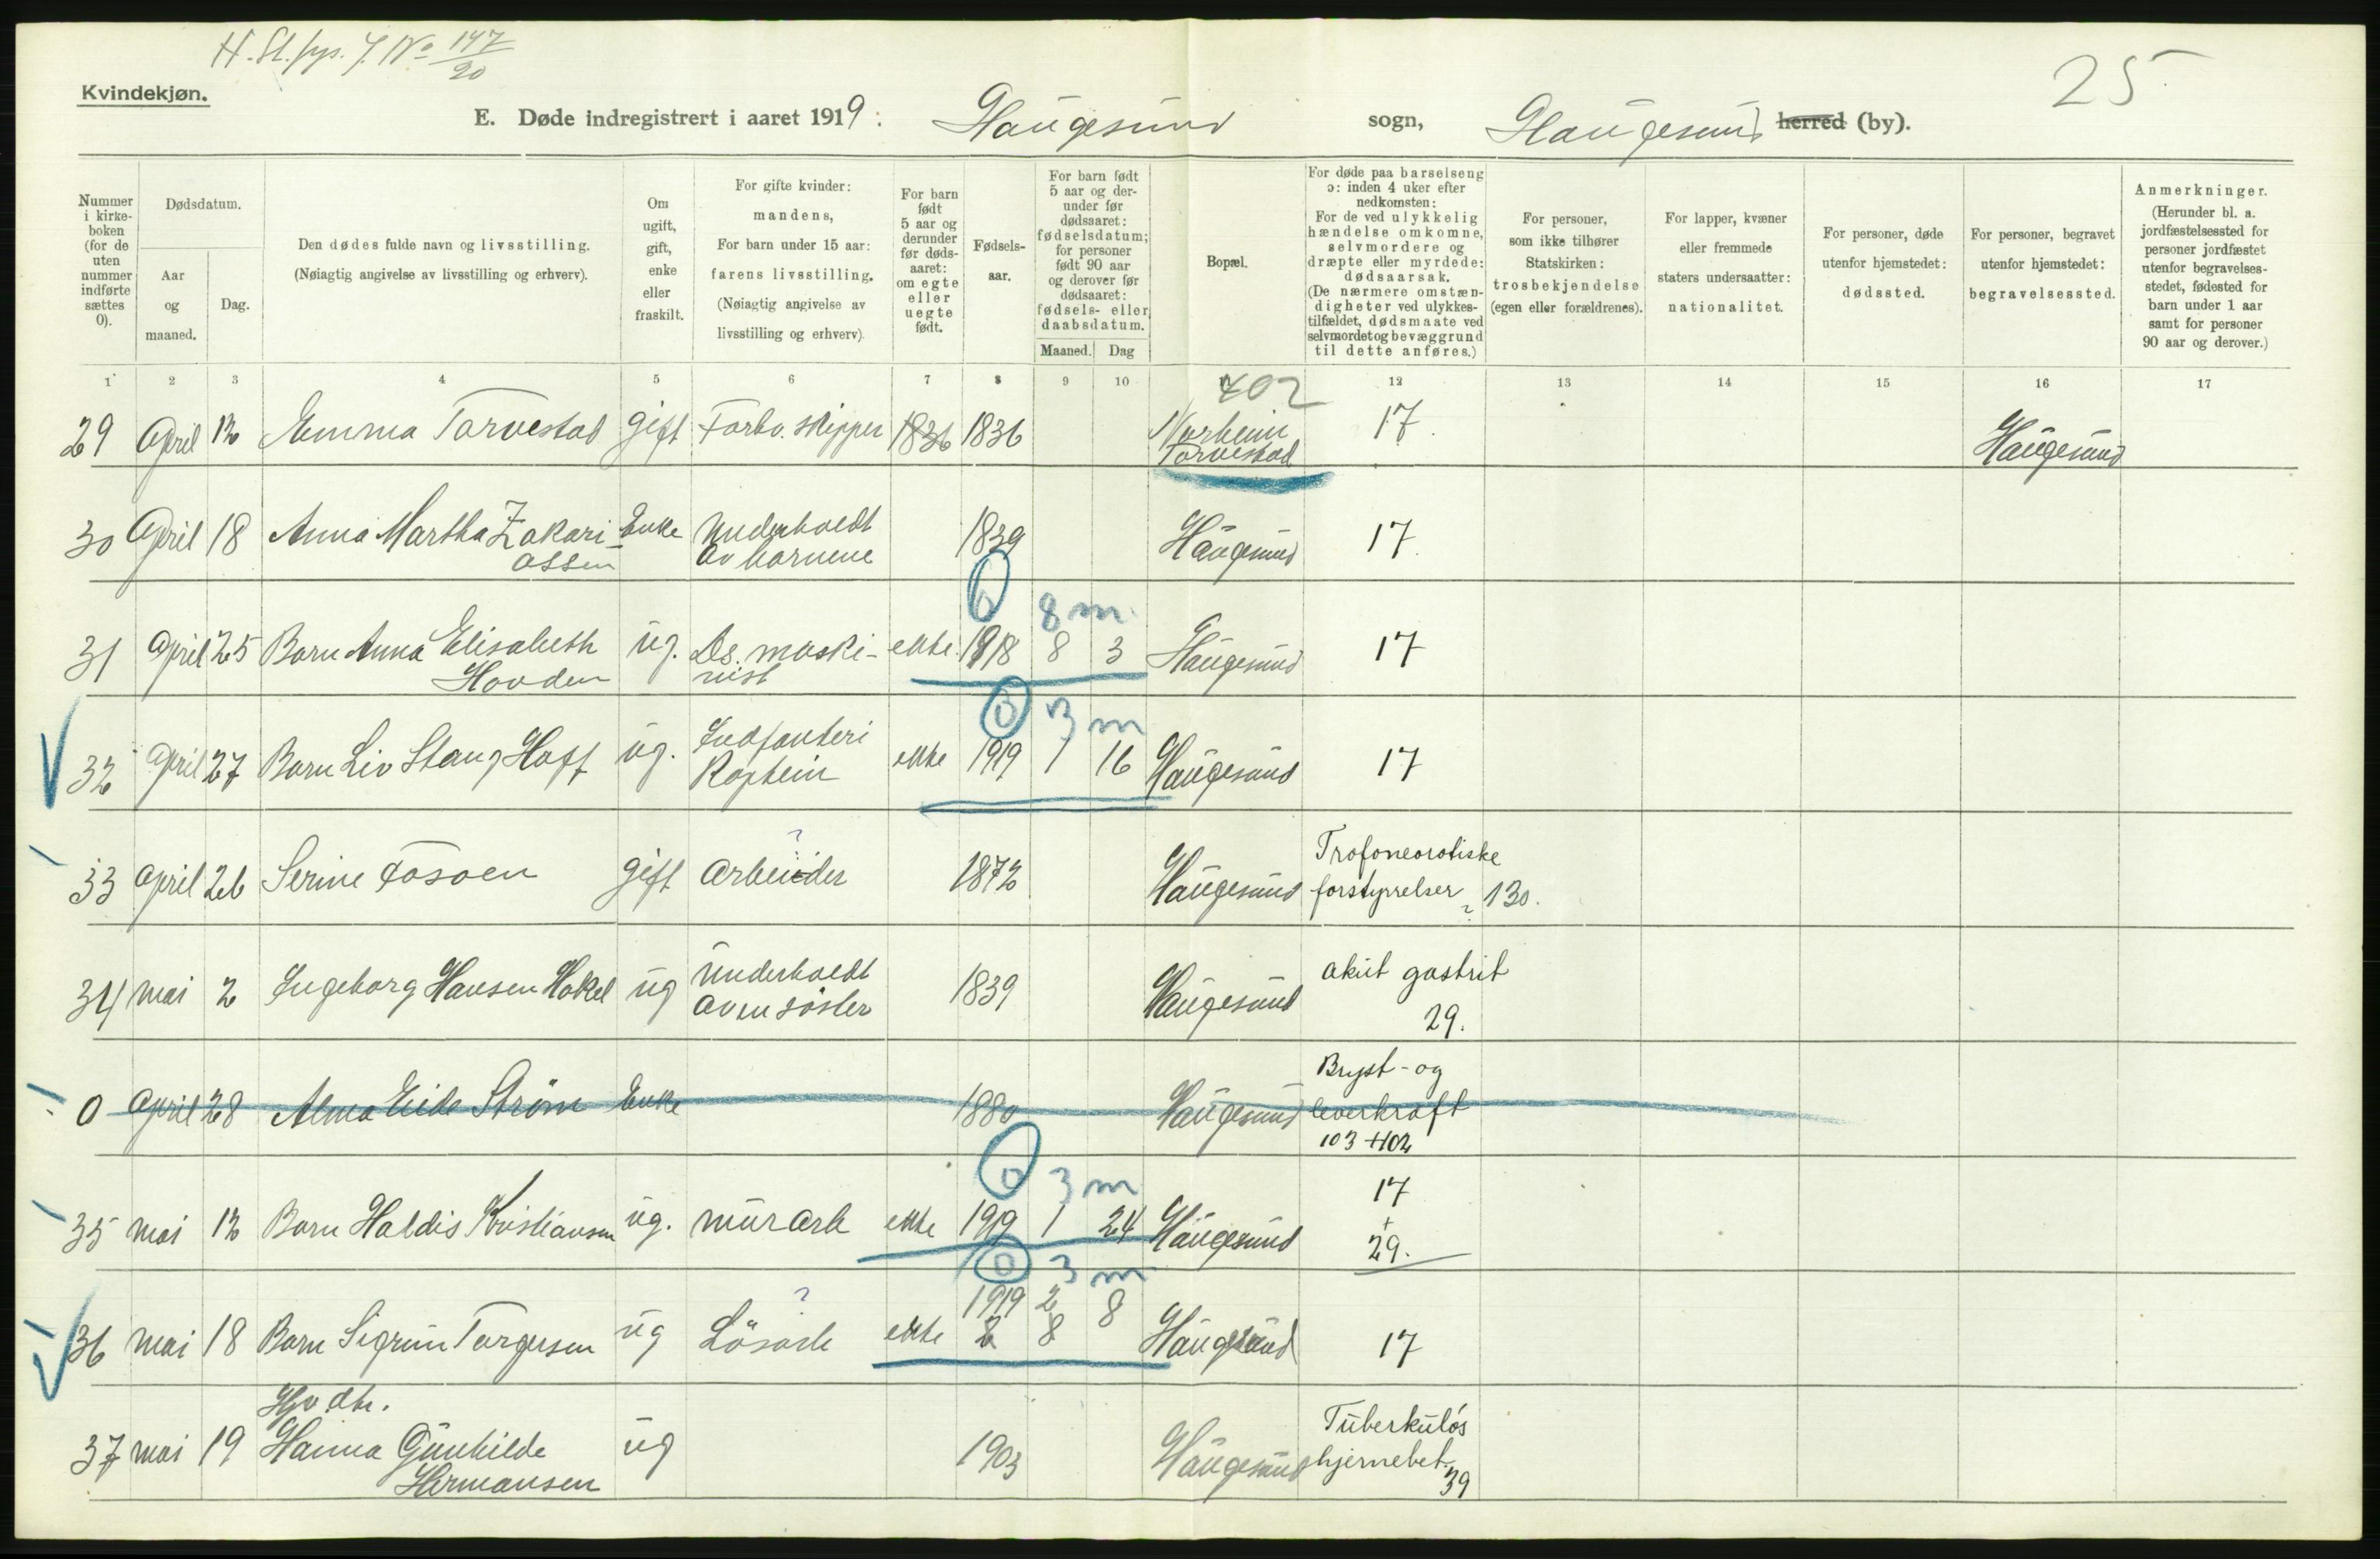 H. St. fys. J. No 147/20
25
Kvindekjøn.
E. Døde indregistrert i aaret 1919: Haugesund sogn, Haugesund herred (by).
Nummer i kirkeboken (for de uten nummer indførte sættes 0).
Dødsdatum.
Aar og maaned.
Dag.
Den dødes fulde navn og livsstilling.
(Nøiagtig angivelse av livsstilling og erhverv).
Om ugift, gift, enke eller fraskilt.
For gifte kvinder: mandens,
For barn under 15 aar: farens livsstilling.
(Nøiagtig angivelse av livsstilling og erhverv).
For barn født 5 aar og derunder før dødsaaret: om egte eller uegte født.
Fødselsaar.
For barn født 5 aar og derunder før dødsaaret: fødselsdatum; for personer født 90 aar og derover før dødsaaret: fødsels- eller daabsdatum.
Maaned. Dag
Bopæl.
For døde paa barselseng ɔ: inden 4 uker efter nedkomsten:
For de ved ulykkelig hændelse omkomne, selvmordere og dræpte eller myrdede: dødsaarsak.
(De nærmere omstændigheter ved ulykkestilfældet, dødsmaate ved selvmordet og bevæggrund til dette anføres.)
For personer, som ikke tilhører Statskirken: trosbekjendelse (egen eller forældrenes).
For lapper, kvæner eller fremmede staters undersaatter: nationalitet.
For personer, døde utenfor hjemstedet: dødssted.
For personer, begravet utenfor hjemstedet: begravelsessted.
Anmerkninger.
(Herunder bl. a. jordfæstelsessted for personer jordfæstet utenfor begravelsesstedet, fødested for barn under 1 aar samt for personer 90 aar og derover.)
1 2 3 4 5 6 7 8 9 10 12 13 14 15 16 17
402
29 April 12 Emma Torvestad gift Forhv. skipper 1836 1836 Norheim Torvestad 17. Haugesund
30 April 18 Anna Martha Zakariassen Enke Underholdt av barnene 1839 Haugesund 17.
0 8 m.
31 April 25 Barn Anna Elisabeth Hovden ug. Ds. maskinist ekte 1918 8 3 Haugesund 17
0 3 m
32 April 27 Barn Liv Stang Hoff ug. Indfanteri Kaptein ekte 1919 1 16 Haugesund 17
33 April 26 Serine Fosoen gift Arbeider ? 1872 Haugesund Trofoneorotiske forstyrrelser ? 130.
34 mai 2 Ingeborg Hansen Hakel ug Underholdt av en søster 1839 Haugesund akut gastrit 29.
0 April 28 Alma Eide Strøm Enke 1880 Haugesund Bryst- og leverkræft 103 + 102
0 3 m
35 mai 12 Barn Haldis Kristiansen ug. murarb ekte 1919 1 24 Haugesund 17 + 29.
0 3 m
36 mai 18 Barn Sigrun Torgersen ug Løsarb ? ekte 1919 2 8 2 8 Haugesund 17
37 mai 19 Hv. dtr. Hanna Gunhilde Hermansen ug 1903 Haugesund Tuberkuløs hjernebet. 39